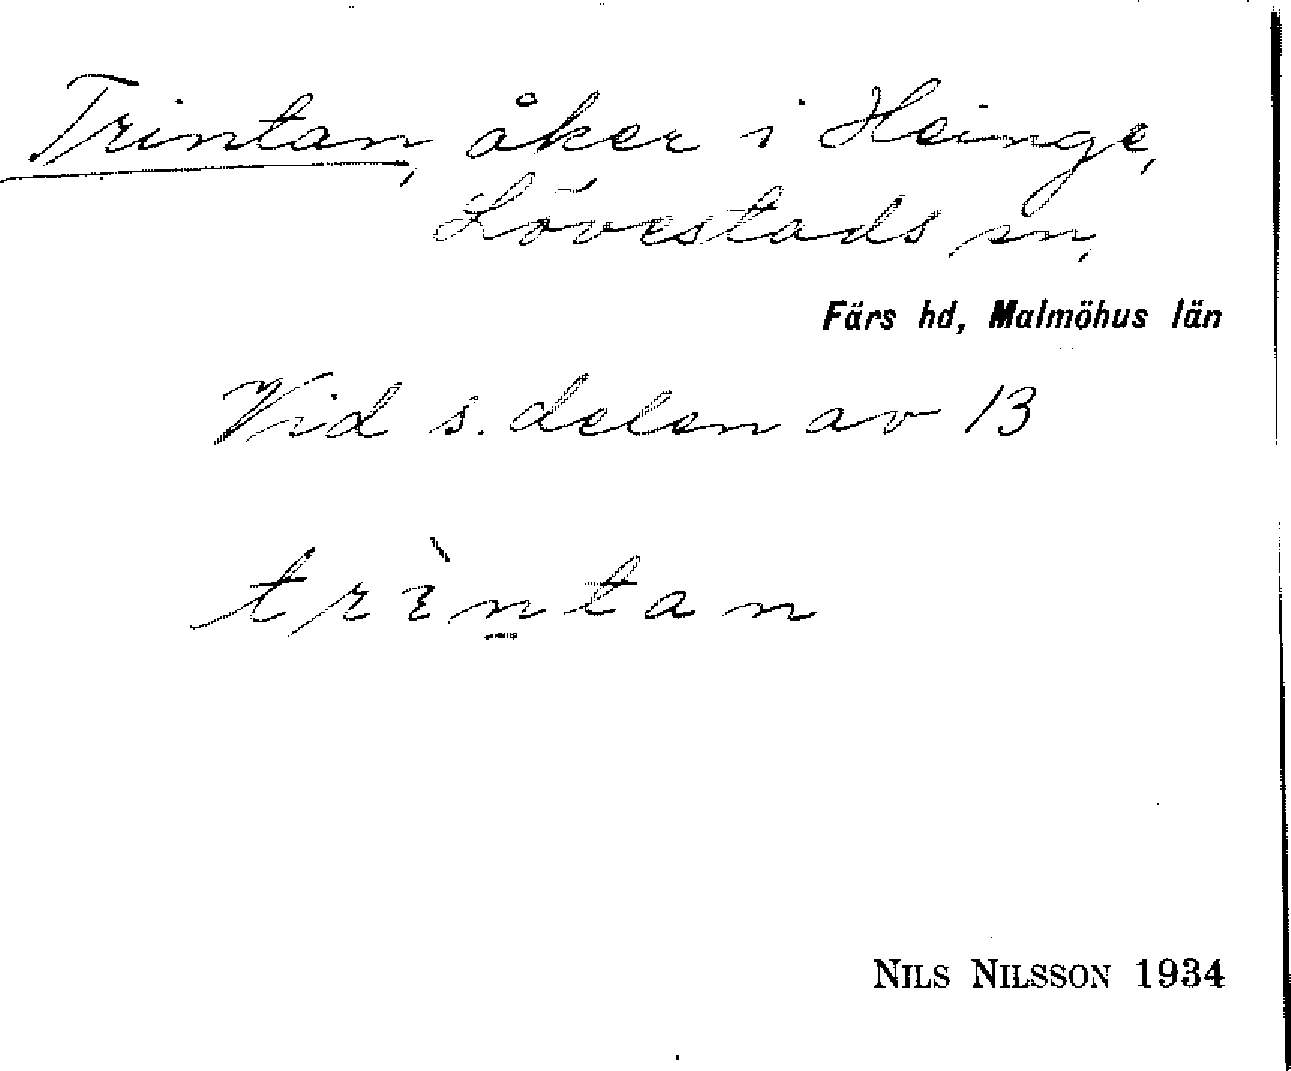 Trintan, åker i Heinge,
Lövestads sn,
Färs hd, Malmöhus län
Vid s. delen av 13
trìn̠tan
NILS NILSSON 1934